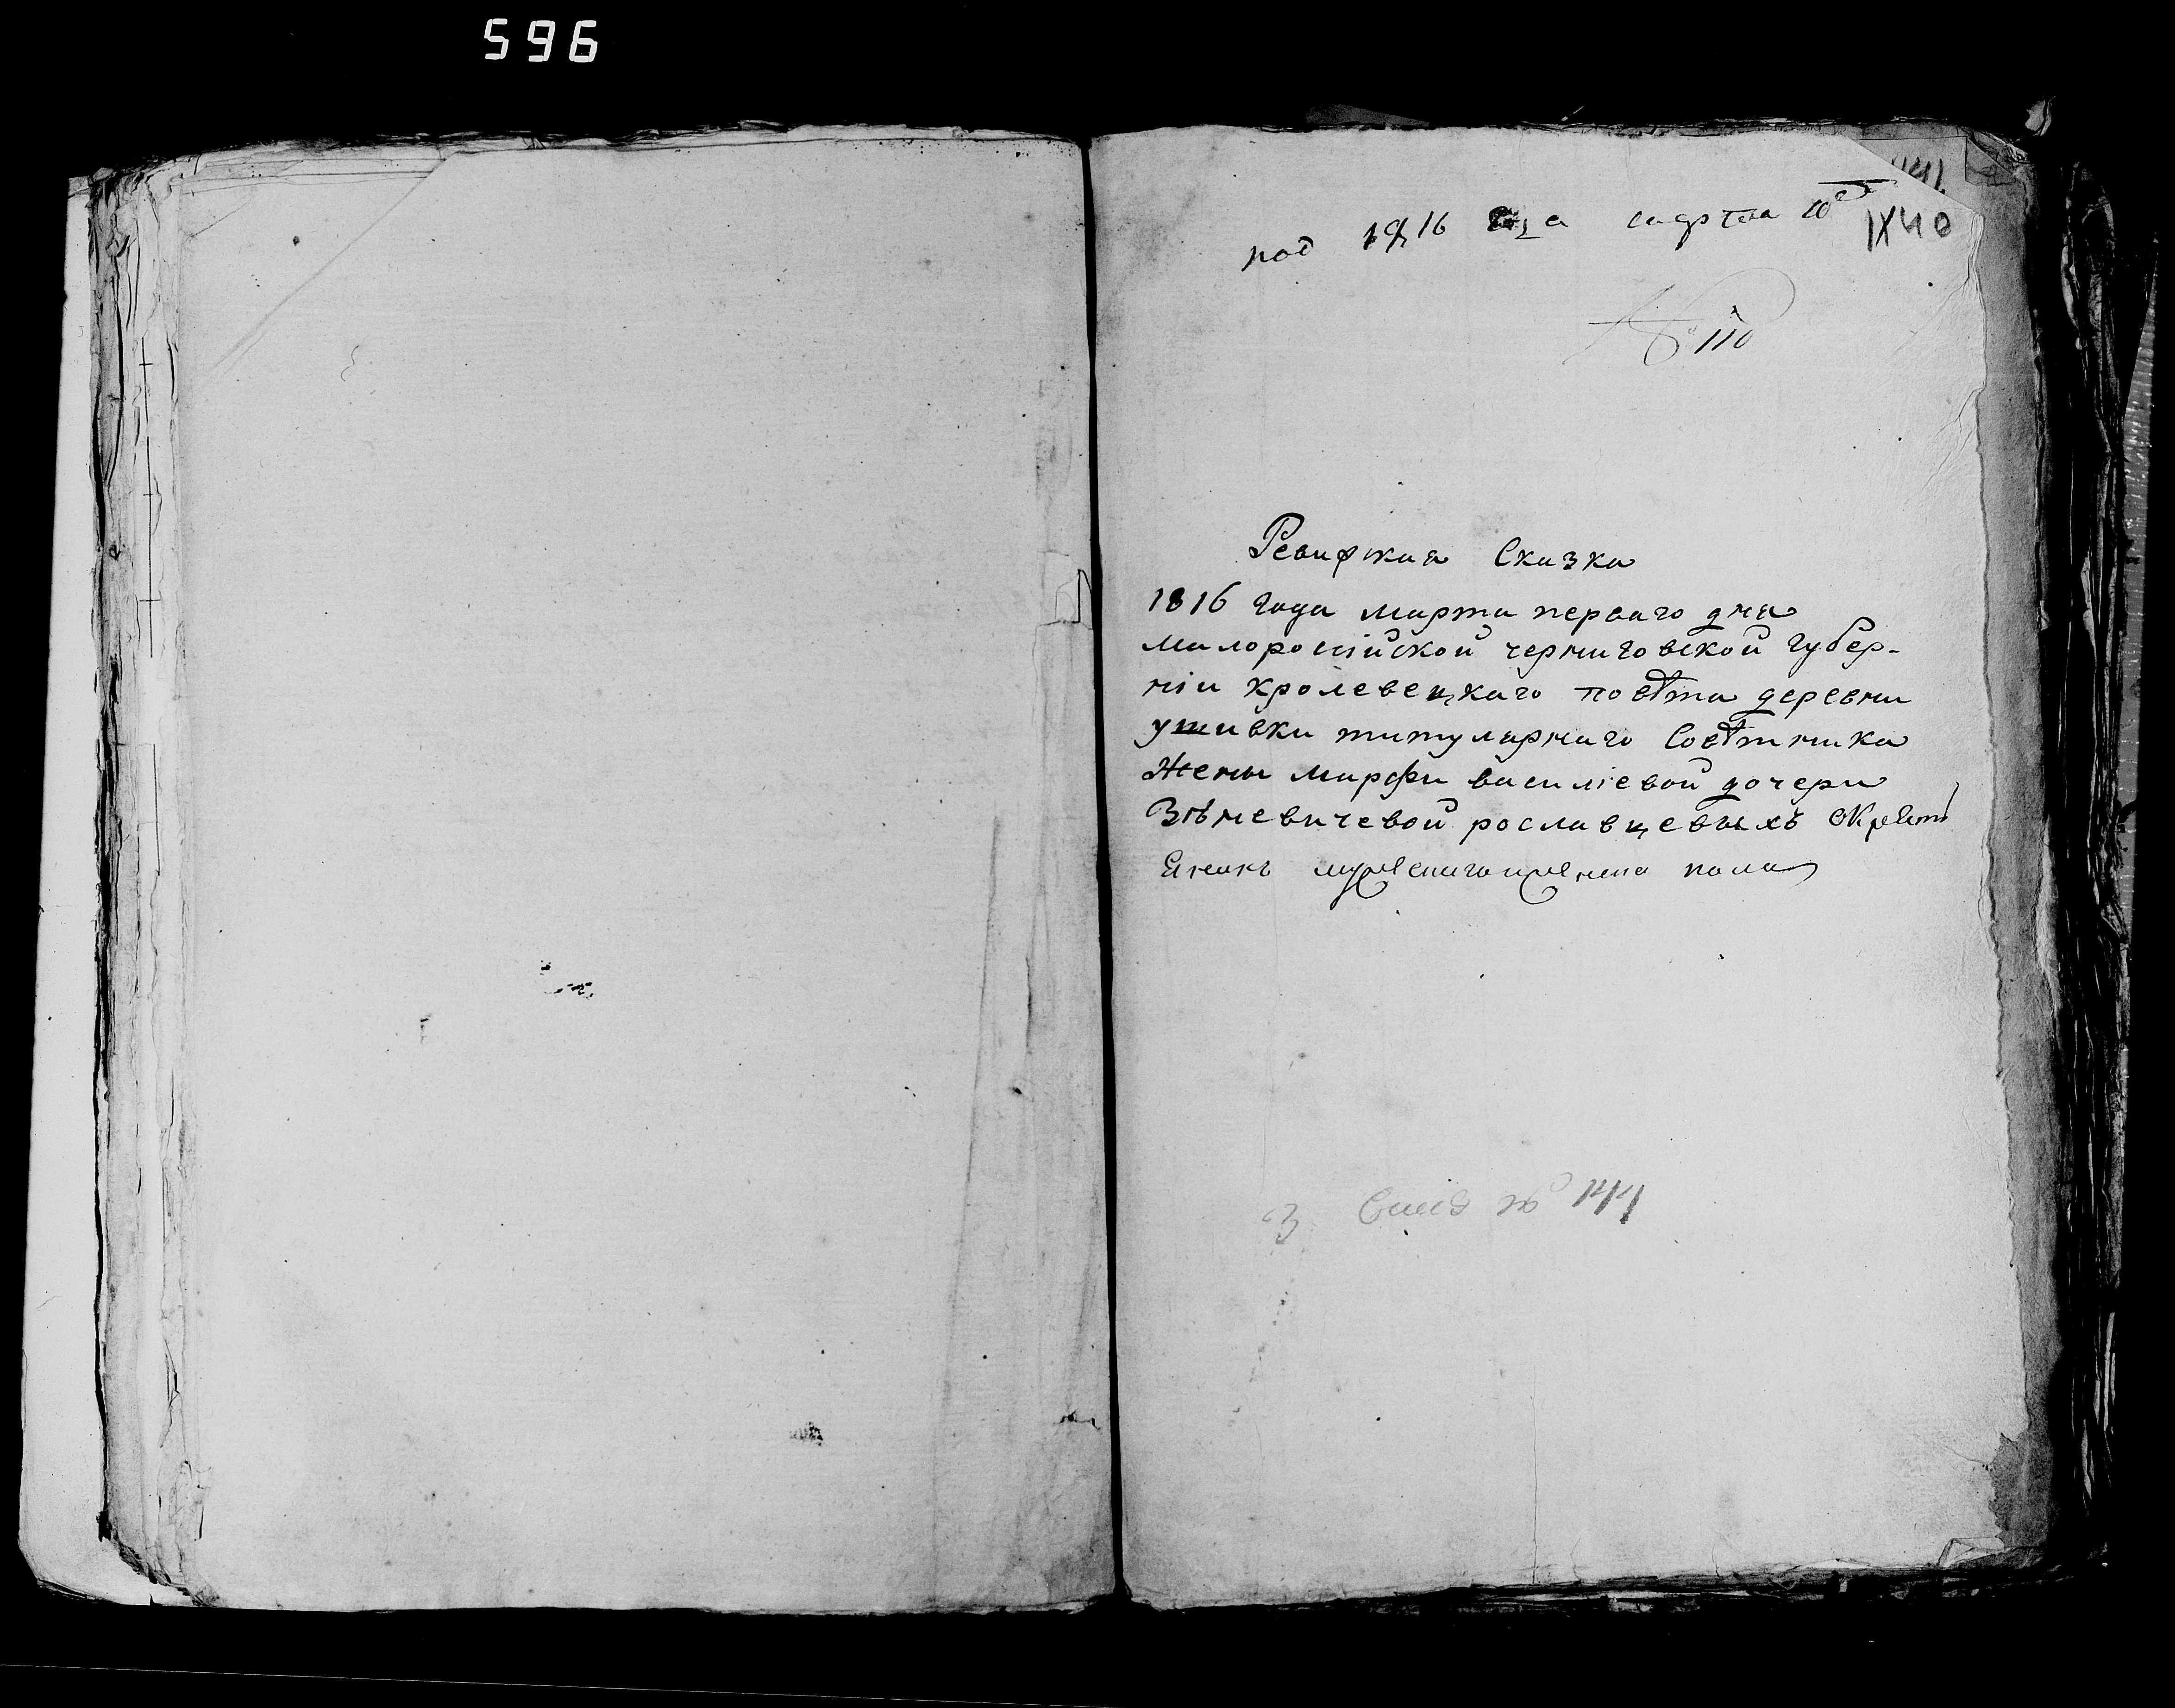 596
под 1816 года марта 10
1140
№ 110
Ревизкая Сказка
1816 года марта перваго дня
малоросійской черниговской губер-
ніи кролевецкаго повѣта деревни
ушивки титулярнаго Совѣтника
Жены марфы василіевой дочери
Зѣневичевой рославцевыхъ окрестя
янахъ мужескаго иженска пола
3 № 141